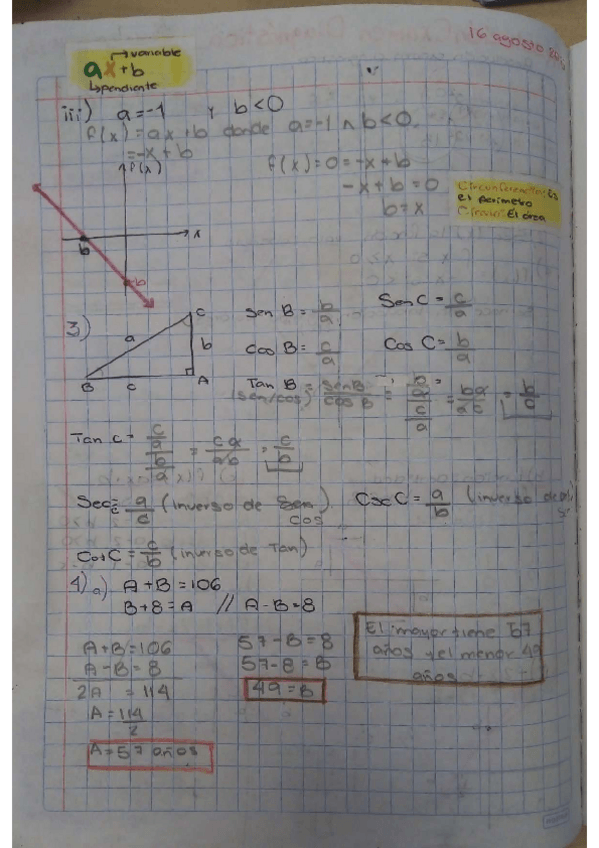 16 agosto
→variable
ax+b
↳pendiente
iii) a=-1 y b<0
f(x)=ax+b donde a=-1 ∧ b<0
=-x+b
f(x)=0=-x+b
-x+b=0
b=x
Circunferencia: Es
el perímetro
Círculo: El área
f(x)
x
b
b
3)
C
a
b
B
c
A
Sen B = b/a
Sen C = c/a
Cos B = c/a
Cos C = b/a
Tan B = SenB/Cos B = (b/a)/(c/a) = ba/ab = b/c
(sen/cos)
Tan C = (c/a)/(b/a) = ca/ab = c/b
(inverso de Sen
cos
CscC = a/b (inverso de
CotC = c/b (inverso de Tan)
4) a) A+B=106
B+8=A // A-B=8
A+B=106
A-B=8
2A =114
A=114/2
A=57 años
57-B=8
57-8=B
49=B
El mayor tiene 57
años y el menor 49
años